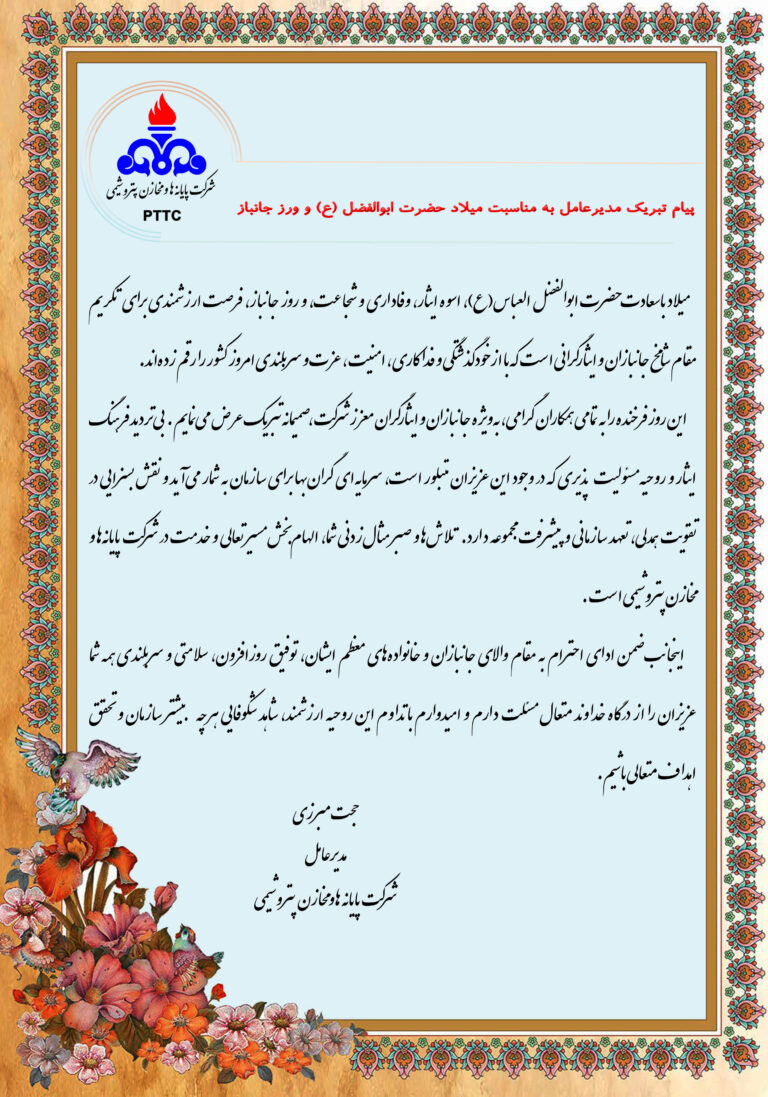 شرکت پایانه ها و مخازن پتروشیمی
PTTC
پیام تبریک مدیرعامل به مناسبت میلاد حضرت ابوالفضل (ع) و ورز جانباز
میلاد باسعادت حضرت ابوالفضل العباس(ع)، اسوه ایثار، وفاداری و شجاعت، و روز جانباز، فرصت ارزشمندی برای تکریم
مقام شامخ جانبازان و ایثارگرانی است که با از خودگذشتگی و فداکاری، امنیت، عزت و سربلندی امروز کشور را رقم زده‌اند.
این روز فرخنده را به تمامی همکاران گرامی، به‌ویژه جانبازان و ایثارگران معزز شرکت، صمیمانه تبریک عرض می‌نمایم. بی‌تردید فرهنگ
ایثار و روحیه مسئولیت پذیری که در وجود این عزیزان متبلور است، سرمایه‌ای گران‌بها برای سازمان به شمار می‌آید و نقش بسزایی در
تقویت همدلی، تعهد سازمانی و پیشرفت مجموعه دارد. تلاش‌ها و صبر مثال زدنی شما، الهام‌بخش مسیر تعالی و خدمت در شرکت پایانه ها و
مخازن پتروشیمی است.
اینجانب ضمن ادای احترام به مقام والای جانبازان و خانواده‌های معظم ایشان، توفیق روزافزون، سلامتی و سربلندی همه شما
عزیزان را از درگاه خداوند متعال مسئلت دارم و امیدوارم با تداوم این روحیه ارزشمند، شاهد شکوفایی هرچه بیشتر سازمان و تحقق
اهداف متعالی باشیم.
حجت میرزی
مدیرعامل
شرکت پایانه ها و مخازن پتروشیمی